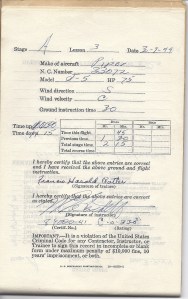 Stage A Lesson 3 Date 3-9-44
Make of aircraft Piper
N. C. Number
Model J-5 HP 75
Wind direction S
Wind velocity C
Ground instruction time 30
Time up
Time do
Hrs. Min. Hrs. Min.
Time this flight 45
Previous time 1 30
Total stage time 2 15
Total course time
I hereby certify that the above entries are correct
and I have received the above ground and flight
instruction.
Francis Harold
(Signature of trainee)
I hereby certify that the above entries are correct.
(Signature of instructor)
(Certif. No.) (Rating)
IMPORTANT—It is a violation of the United States
Criminal Code for any Contractor, Instructor, or
Trainee to sign this record in incomplete or blank
form under maximum penalty of $10,000 fine, 10
years' imprisonment, or both.
U. S. GOVERNMENT PRINTING OFFICE